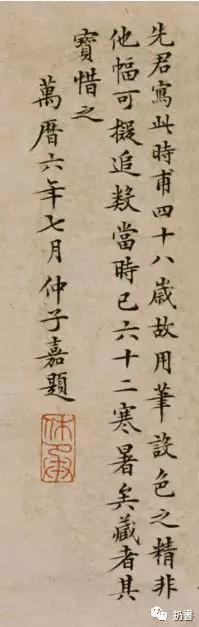 先君寫此時甫四十八歲故用筆設色之精非
他幅可擬追數當時已六十二寒暑矣藏者其
寶惜之
萬曆六年七月仲子嘉題
休承
扔書